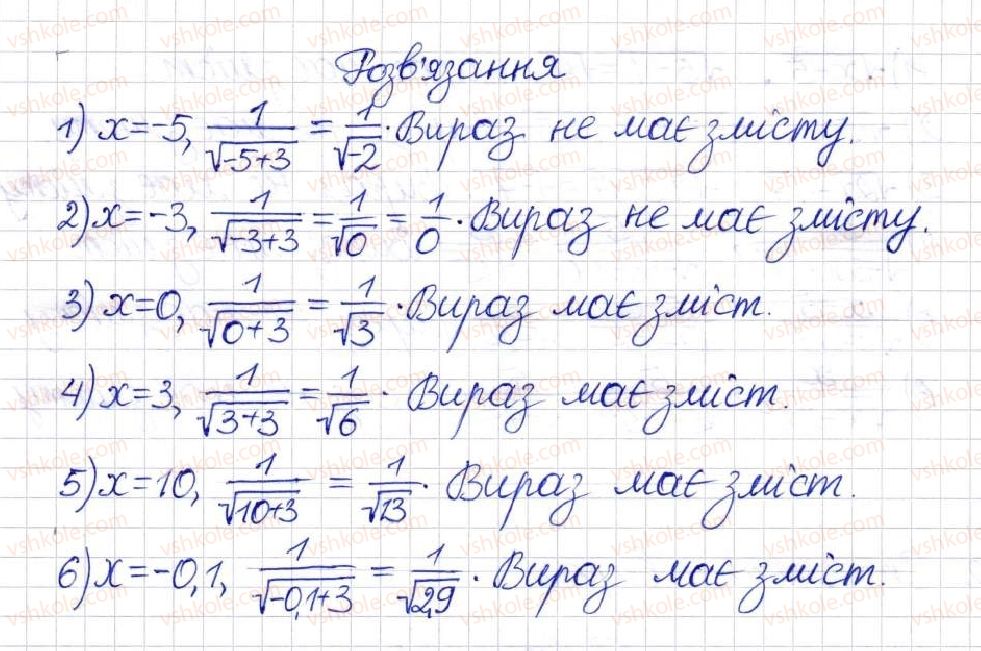 Розв'язання
1) x=-5, 1/√(-5+3) = 1/√(-2). Вираз не має змісту.
2) x=-3, 1/√(-3+3) = 1/√0 = 1/0. Вираз не має змісту.
3) x=0, 1/√(0+3) = 1/√3. Вираз має зміст.
4) x=3, 1/√(3+3) = 1/√6. Вираз має зміст.
5) x=10, 1/√(10+3) = 1/√13. Вираз має зміст.
6) x=-0,1, 1/√(-0,1+3) = 1/√2,9. Вираз має зміст.
vshkole.com